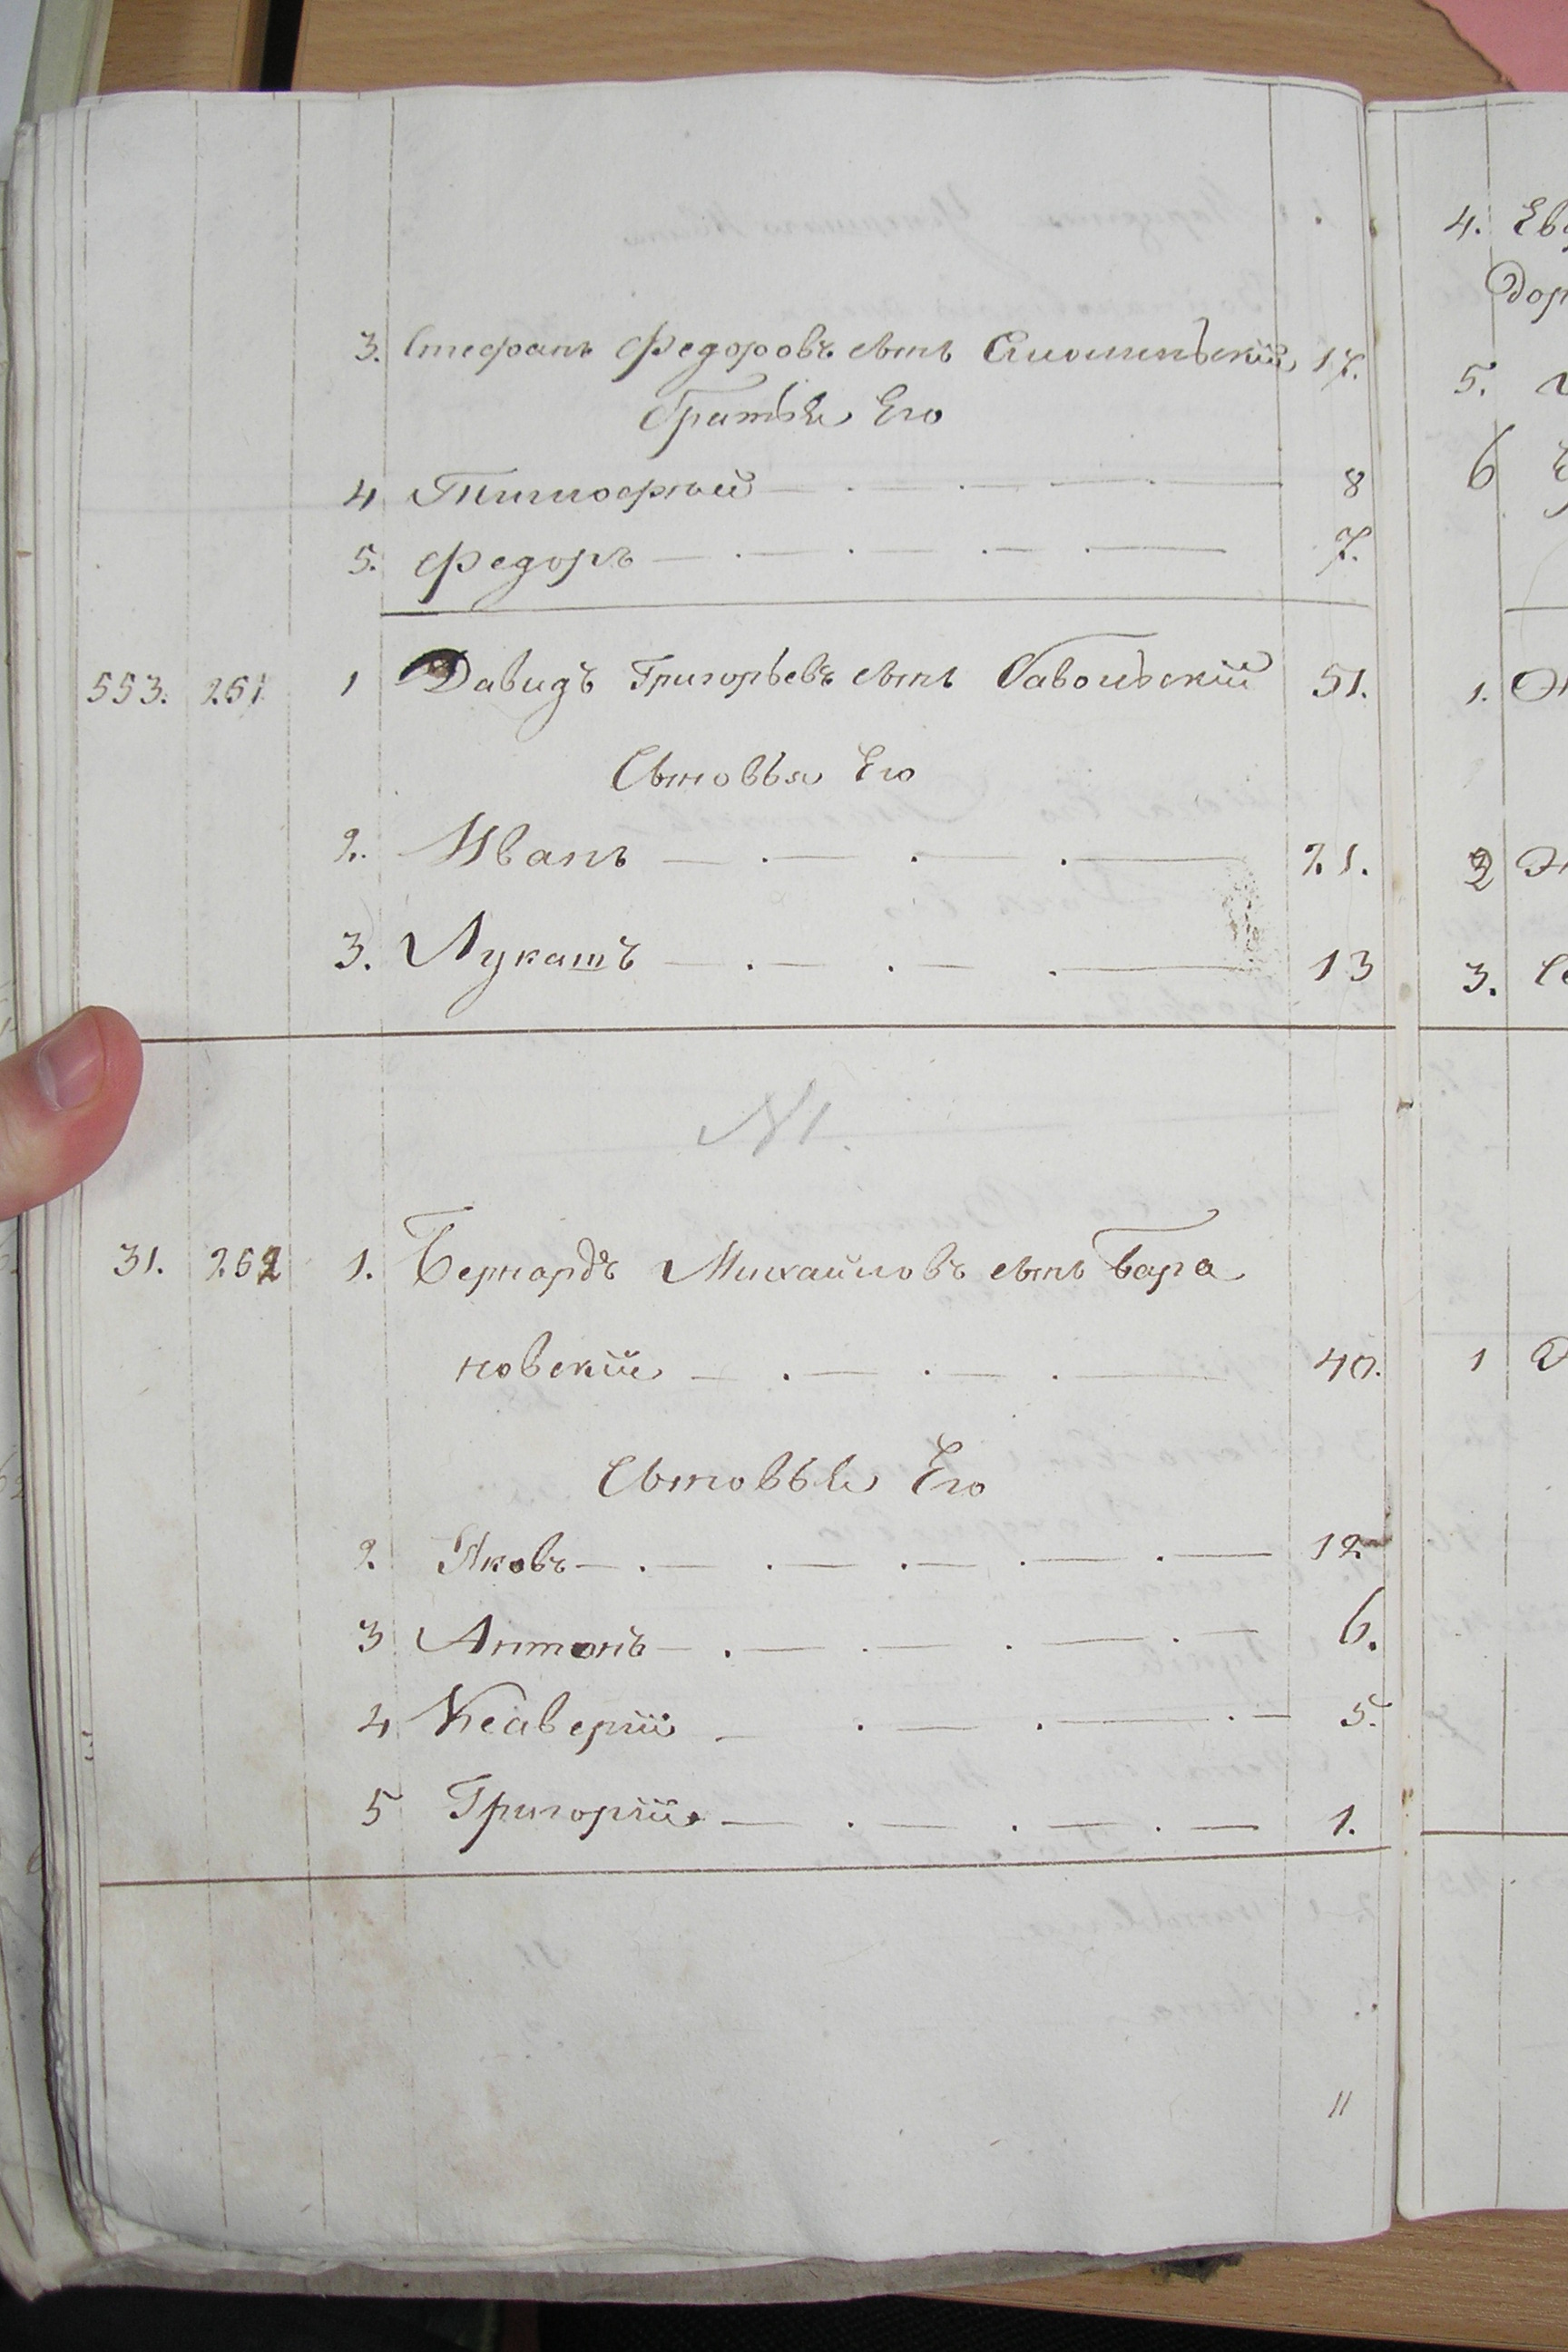 3. Стефанъ Федоровъ сынъ 17.
Братья Его
4 Тимофей 8
5. Федоръ 7.
553. 251 1 Давидъ Григорьевъ сынъ Савольскій 51.
Сыновья Его
2. Иванъ 21.
3. Лукашъ 13
N1.
31. 252 1. Бернардъ Михайловъ сынъ Бара
новскій 40.
Сыновья Его
2. Яковъ 12
3 Антонъ 6.
4 Ксаверій 5.
5 Григорій 1.
11
4.
5.
6
1.
2
3.
1